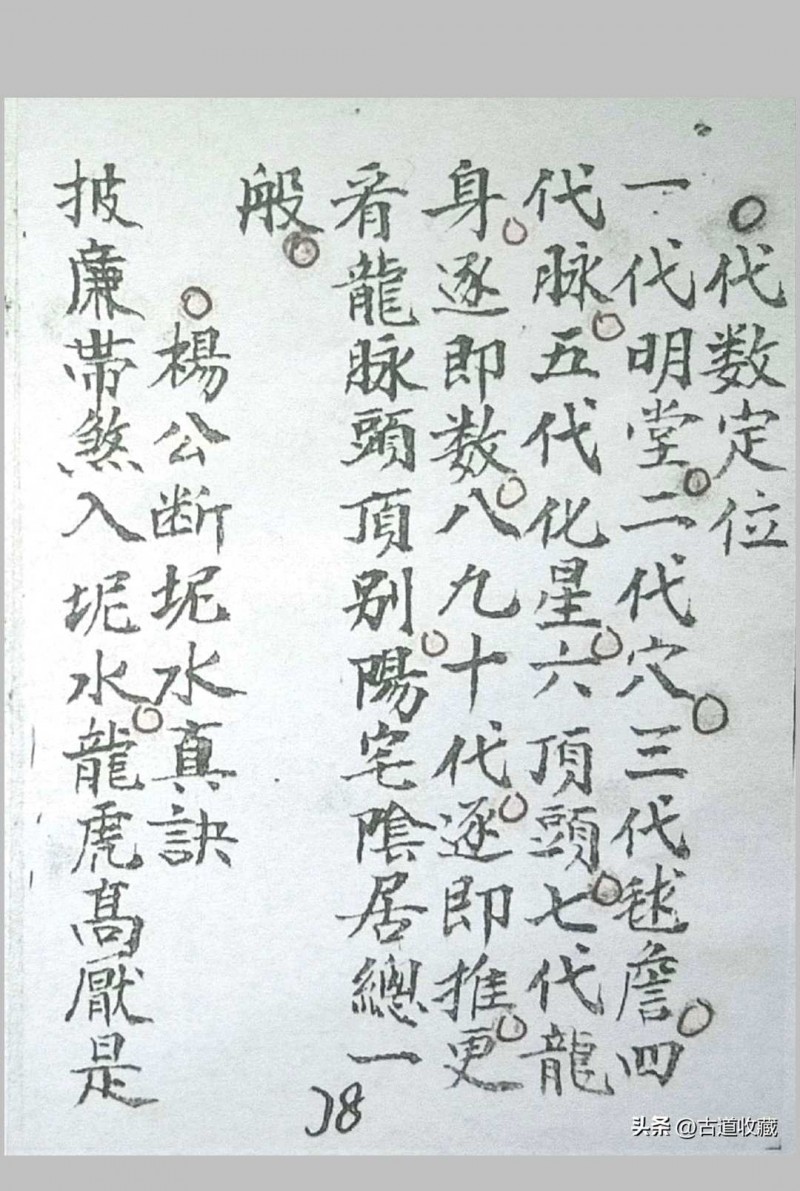 ○代数定位
一代明堂○二代穴○三代毬詹○四
代脉○五代化星○六頂頭○七代龍
身○逐即数○八九十代○逐即推○更
看龍脉頭頂別○陽宅陰居總一
般○
○楊公断坭水真訣
披廉帯煞入坭水○龍虎高厭是
18
头条 @古道收藏